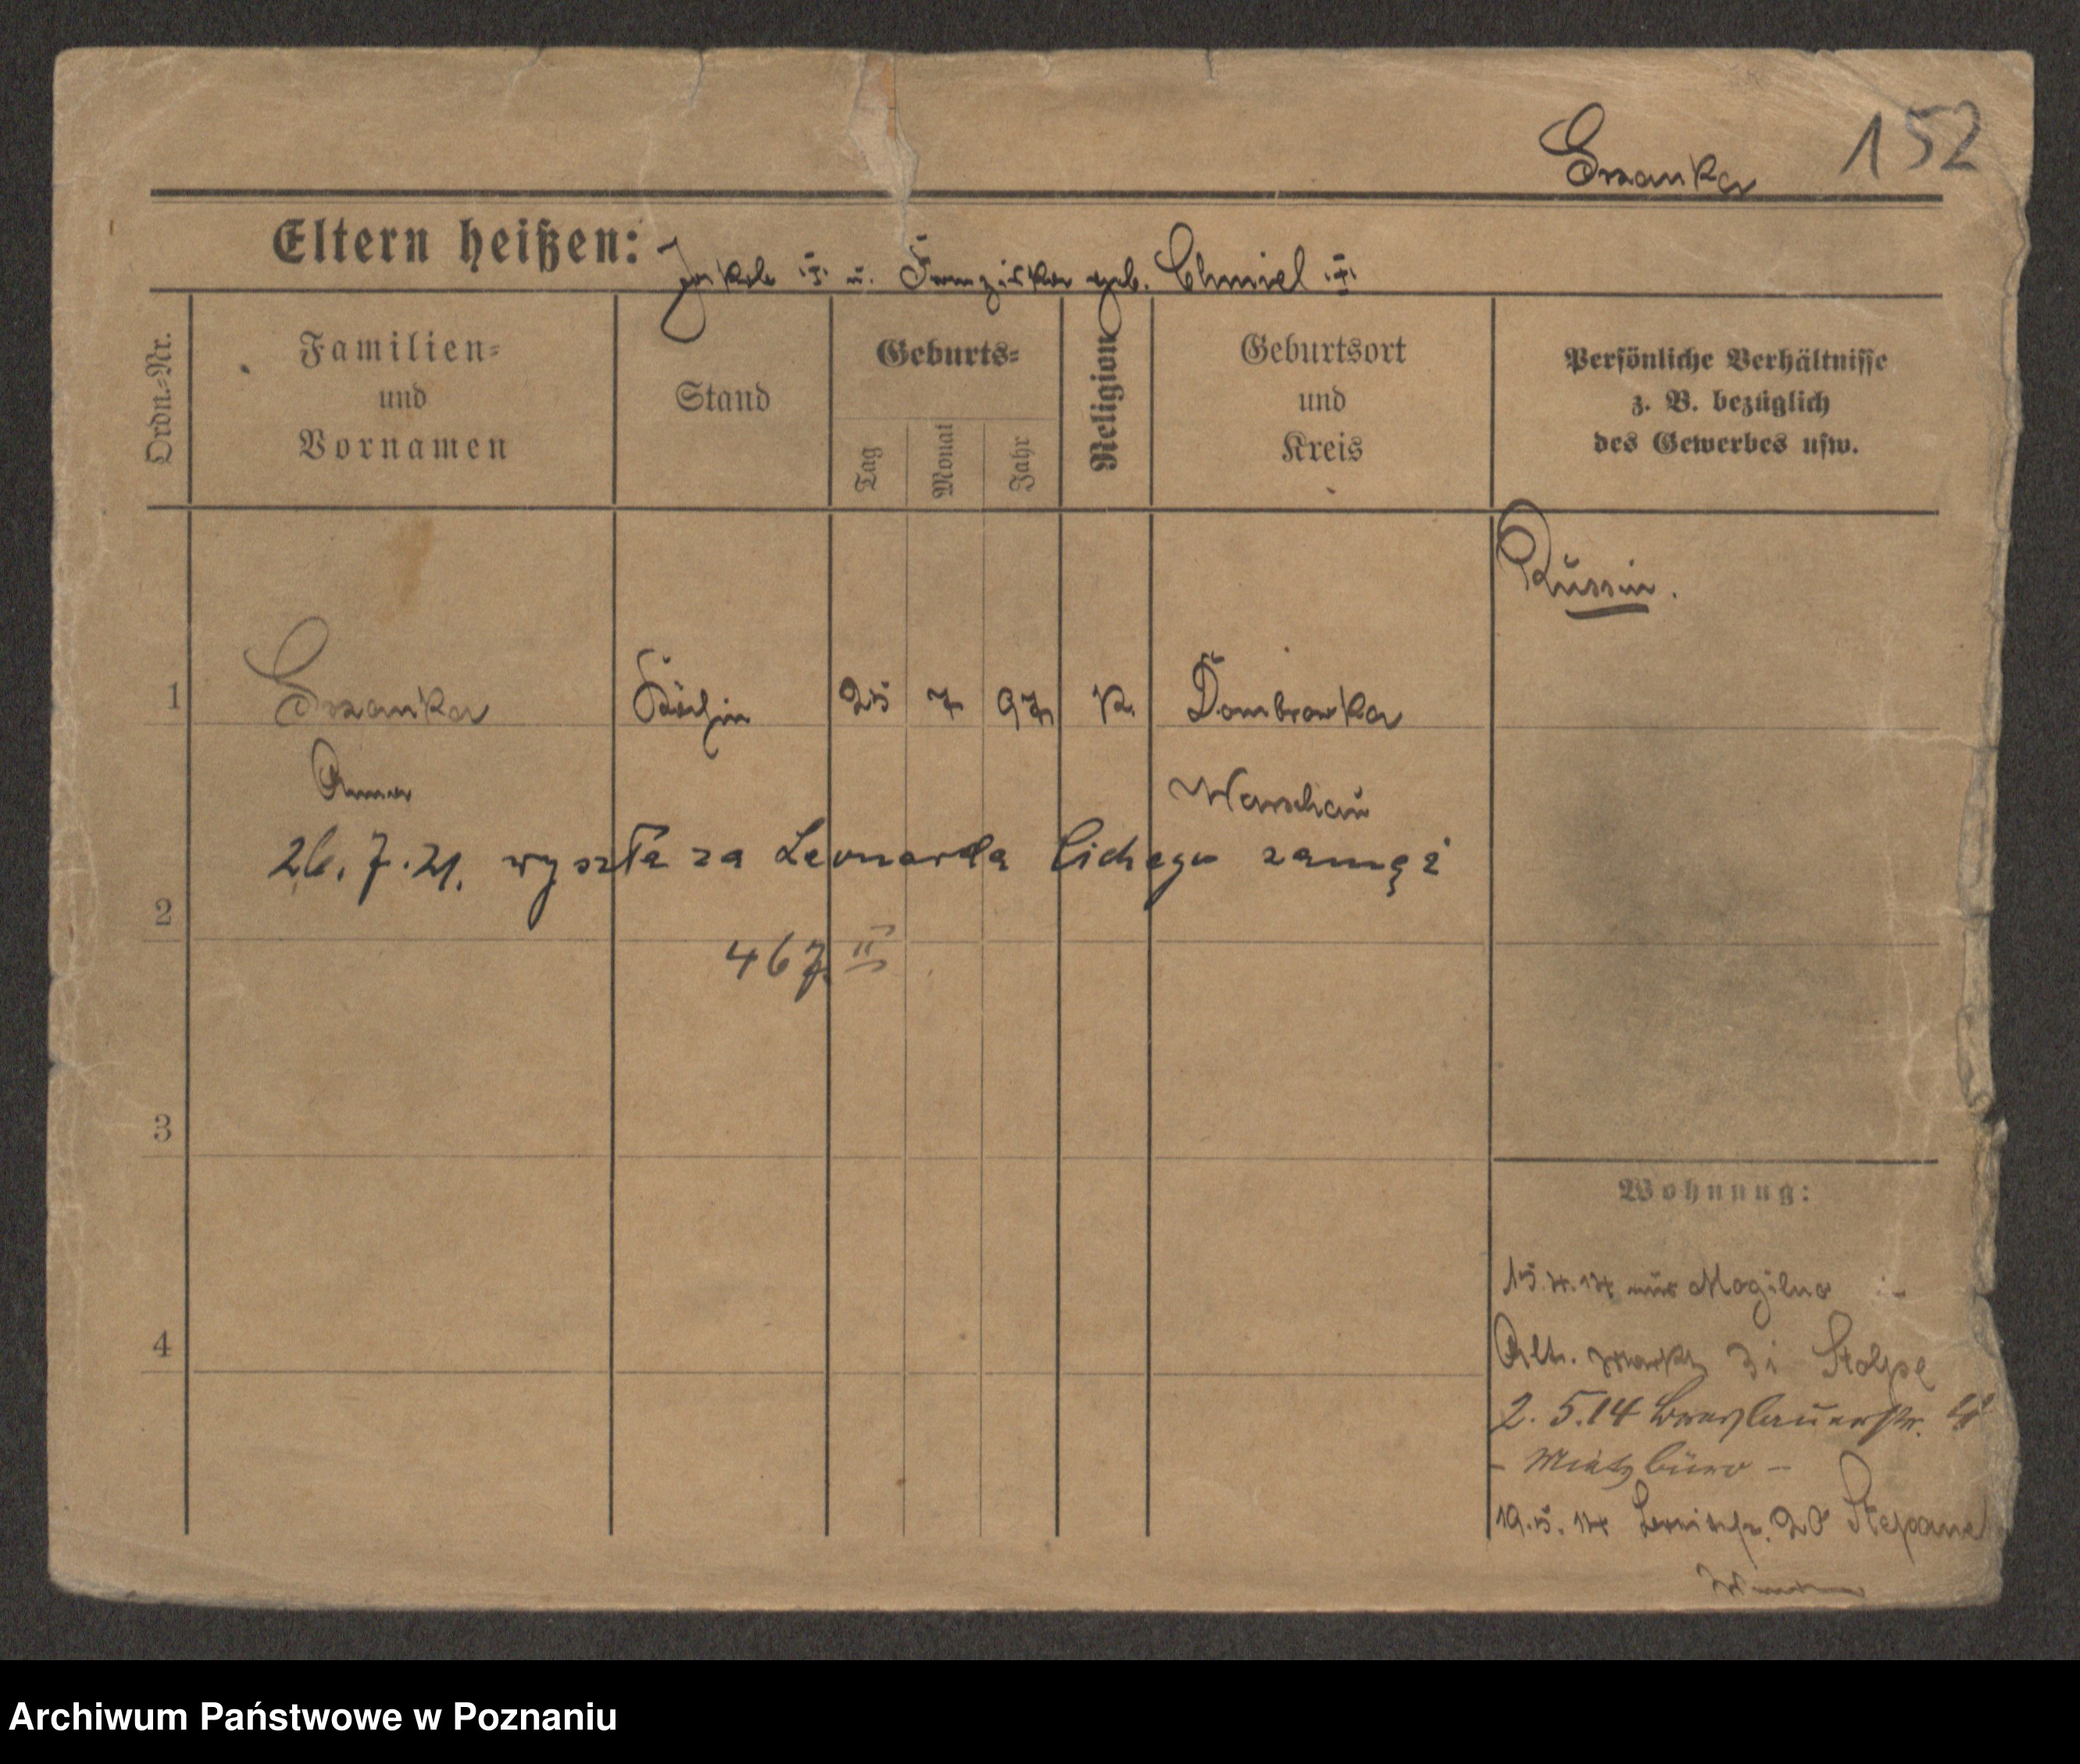 152
Eltern heißen: Jakob u. Franziska geb. Chmiel
Ordn.-Nr.
Familien-
und
Vornamen
Stand
Geburts-
Tag
Monat
Jahr
Religion
Geburtsort
und
Kreis
Persönliche Verhältnisse
z. B. bezüglich
des Gewerbes usw.
Russin.
1 Köchin 25 7 97 K. Dombrowka
Anna Warschau
26.7.21. wyszła za Leonarda Cichego zamąż
2
467 II
3
Wohnung:
15.4.14 aus Mogilno
4
Alt. Markt Stolpe
2.5.14 Breslauerstr.
- Mietsbüro -
19.5.14 20
Archiwum Państwowe w Poznaniu